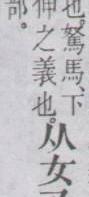 也。駑馬、下
伸之義也。从女
部。